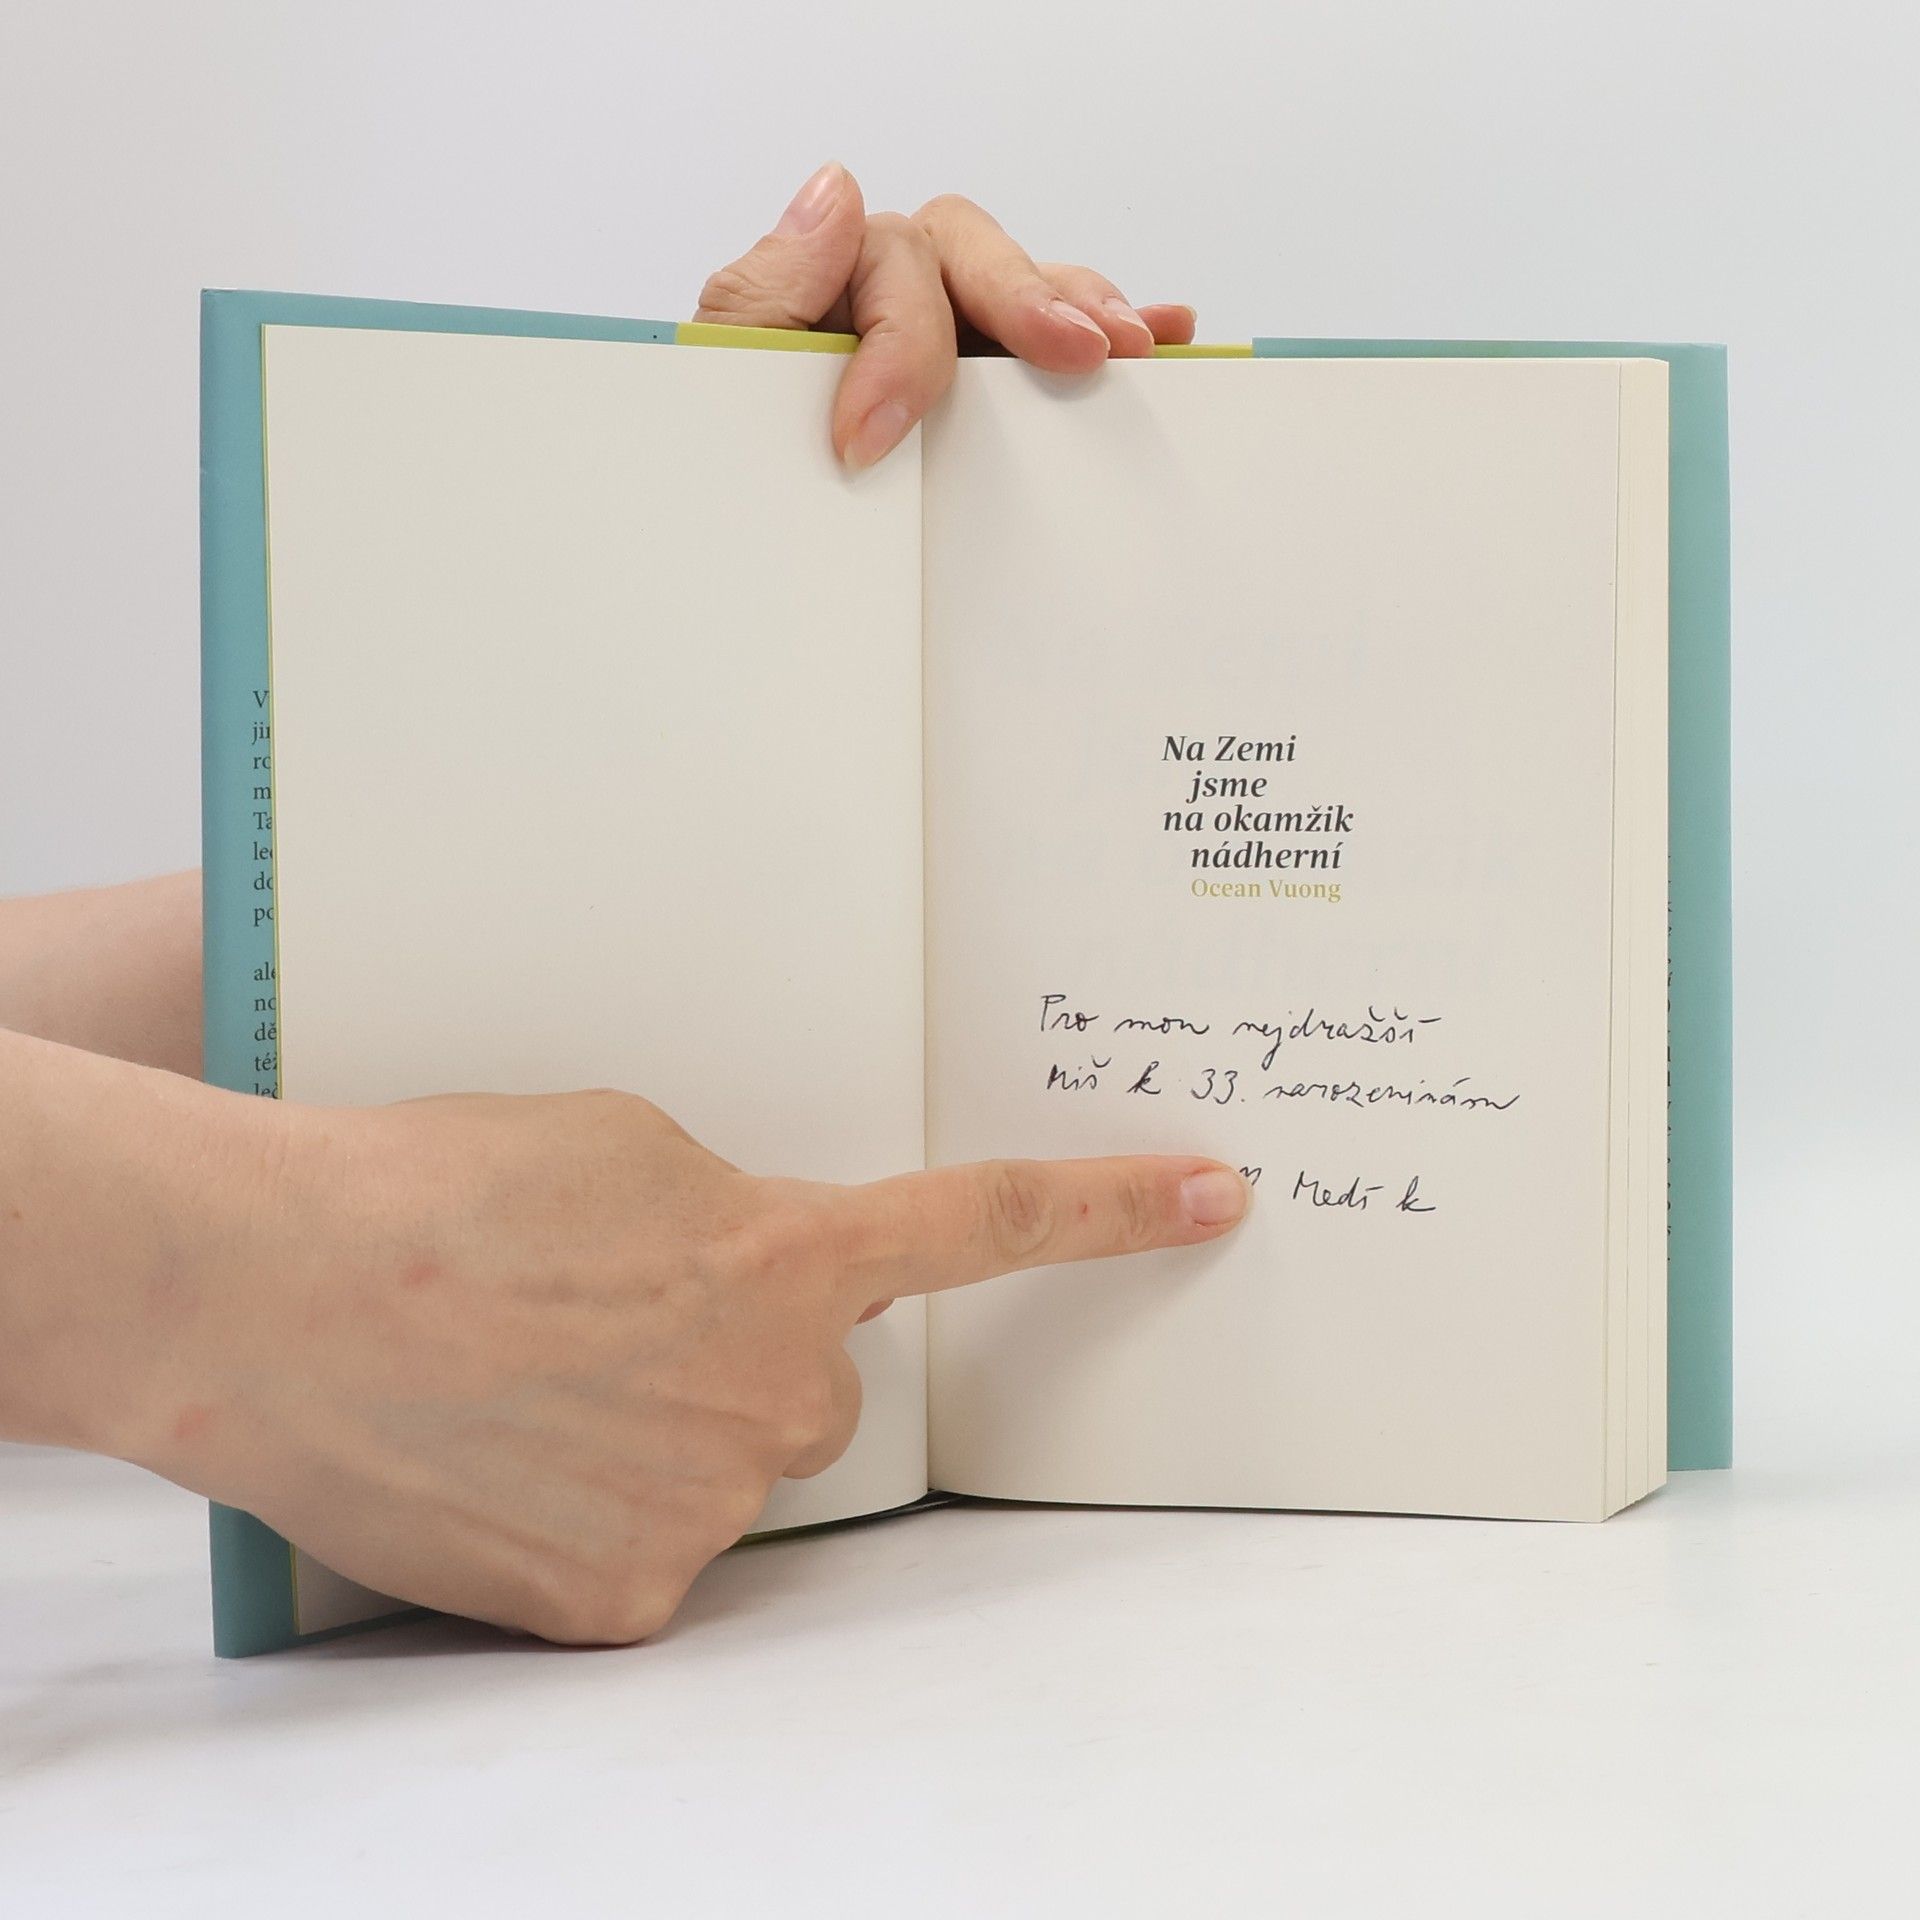 Na Zemi
jsme
na okamžik
nádherní
Ocean Vuong
Pro mou nejdražší
Miš k 33. narozeninám
Medí k
V
ji
ro
m
Ta
le
do
po
ale
no
dě
též
leč